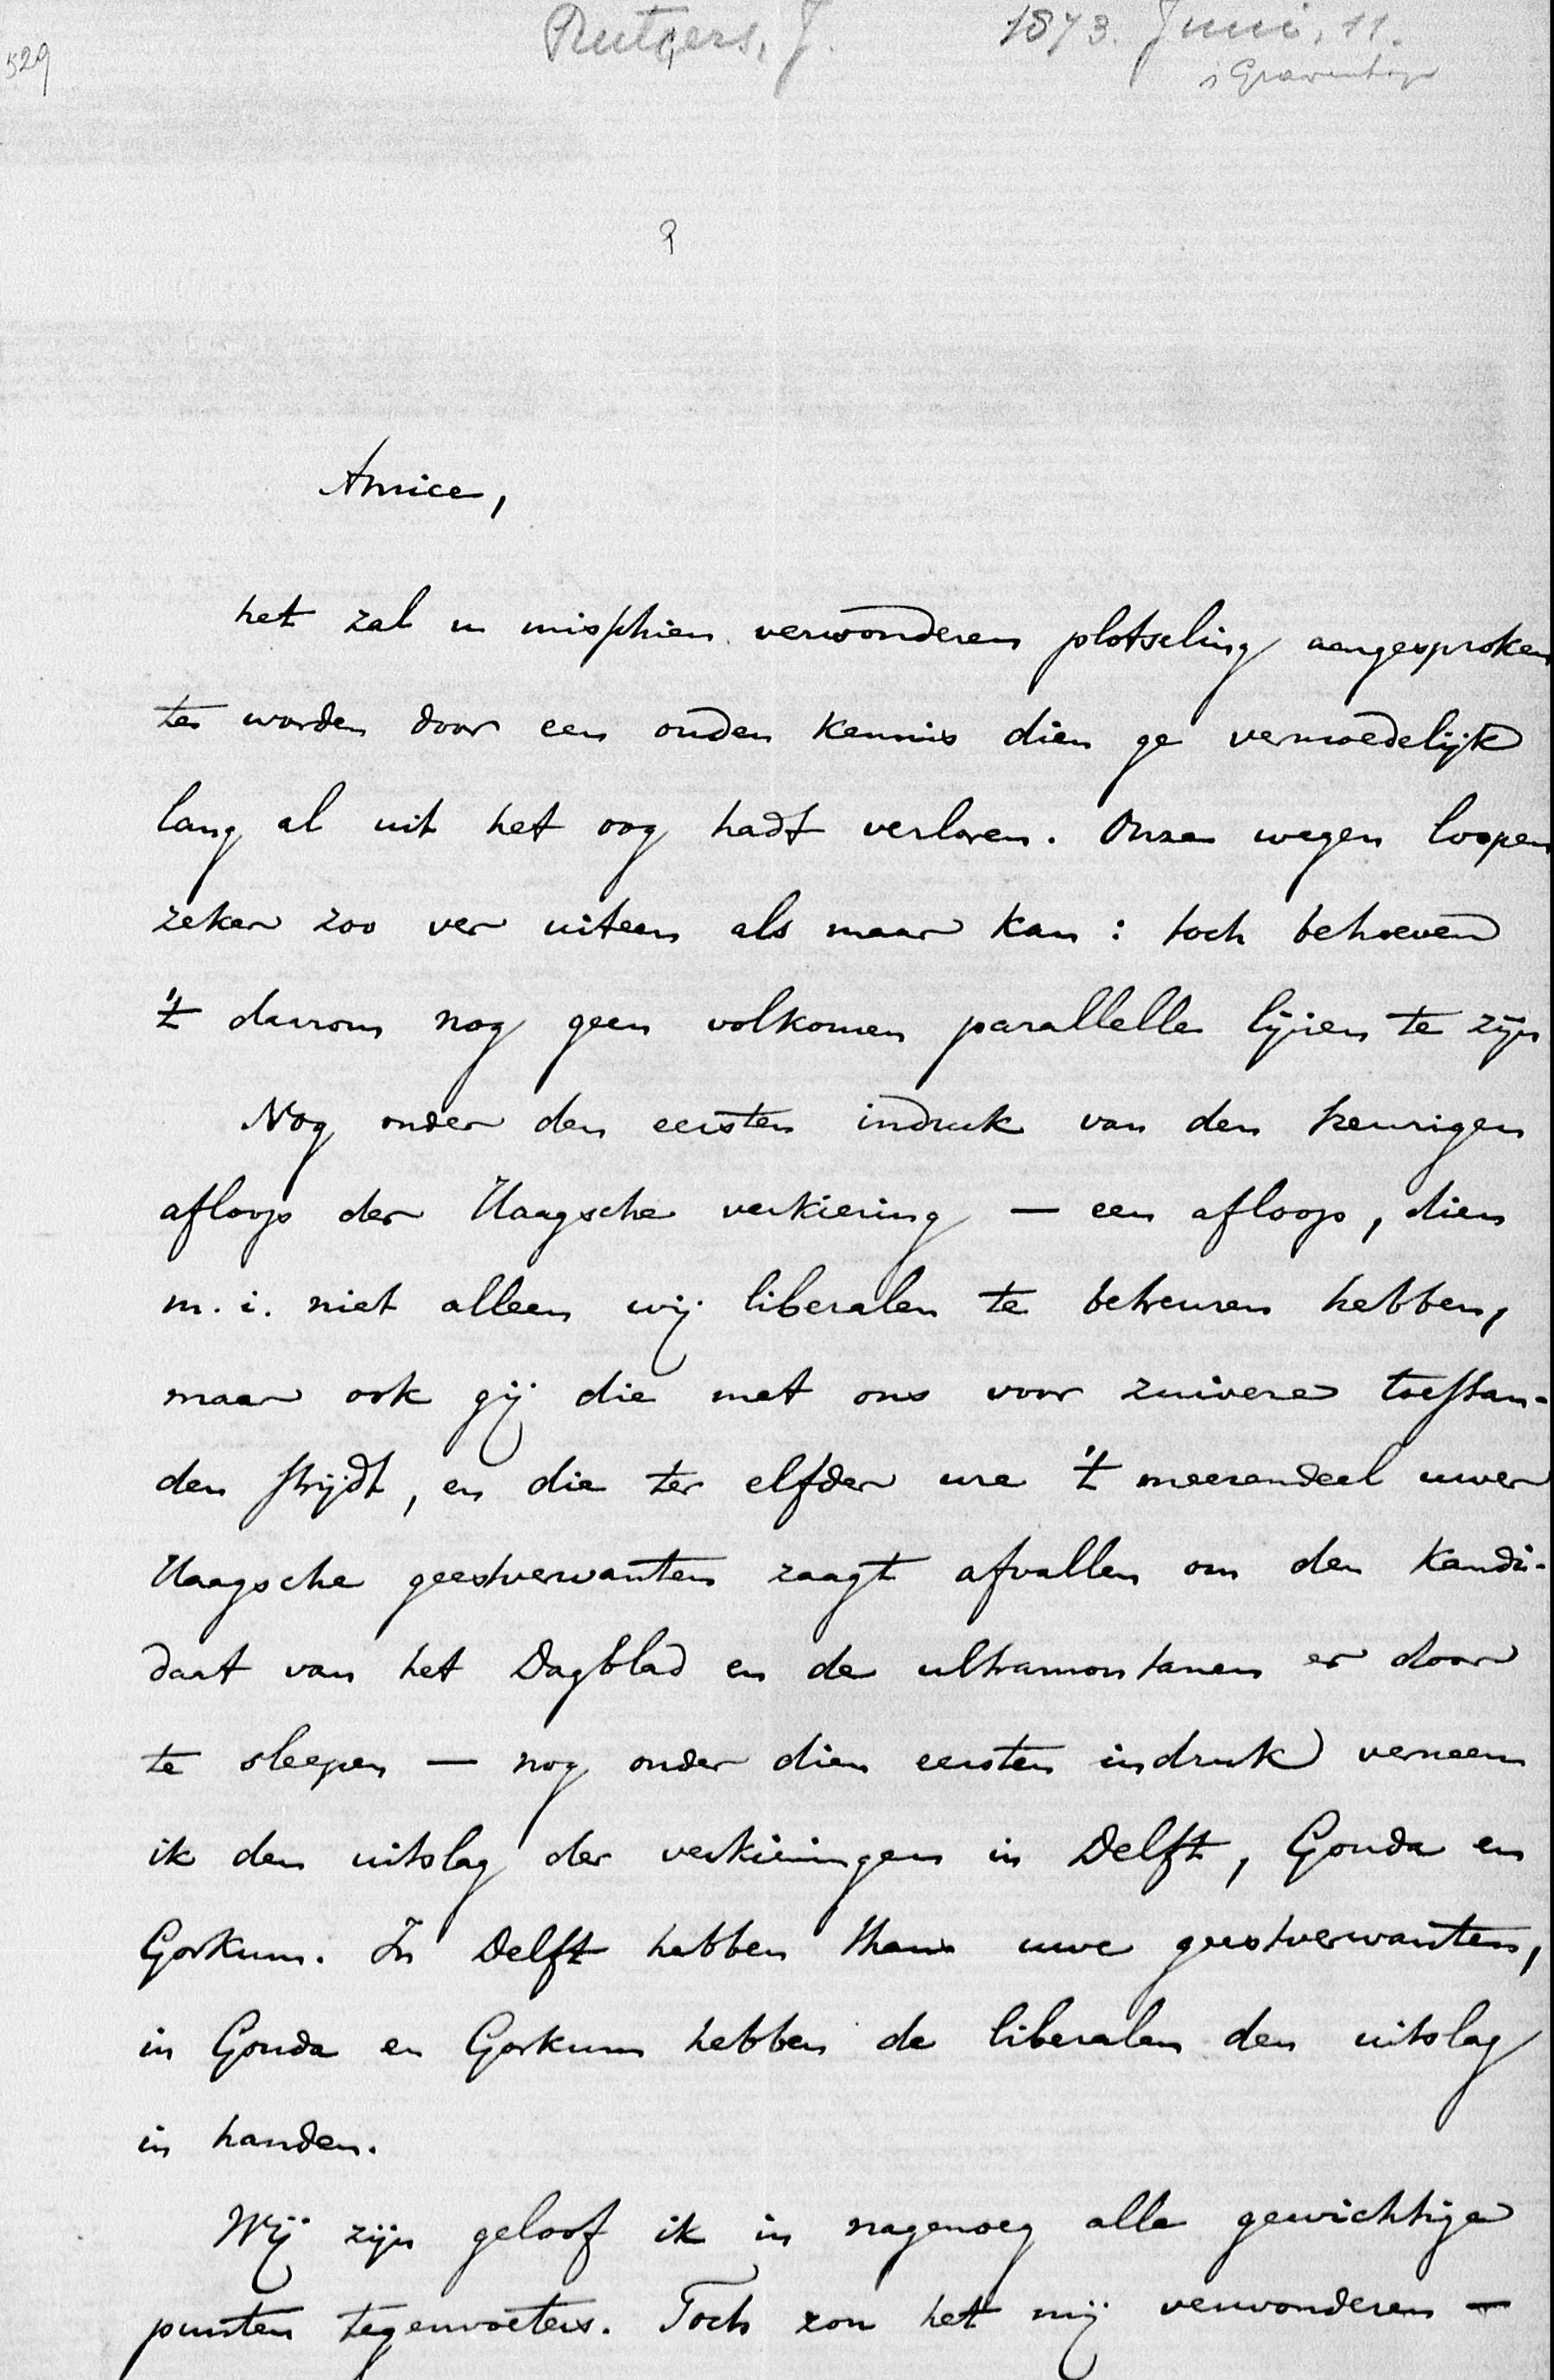 529
Rutgers, J. 1873. Juni, 11.
's Gravenhage
Amice,
het zal u misschien verwonderen plotseling aangesproken
te worden door een ouden kennis dien ge vermoedelijk
lang al uit het oog hadt verloren. Onze wegen loopen
zeker zoo ver uiteen als maar kan: toch behoeven
't daarom nog geen volkomen parallelle lijnen te zijn
Nog onder den eersten indruk van den treurigen
afloop der Haagsche verkiezing — een afloop, dien
m. i. niet alleen wij liberalen te betreuren hebben,
maar ook gij die met ons voor zuivere toestan-
den strijdt, en die ter elfder ure 't meerendeel uwer
Haagsche geestverwanten zaagt afvallen om den kandi-
daat van het Dagblad en de ultramontanen er door
te sleepen — nog onder dien eersten indruk verneem
ik den uitslag der verkiezingen in Delft, Gouda en
Gorkum. In Delft hebben thans uwe geestverwanten,
in Gouda en Gorkum hebben de liberalen den uitslag
in handen.
Wij zijn geloof ik in nagenoeg alle gewichtige
punten tegenvoeters. Toch zou het mij verwonderen —